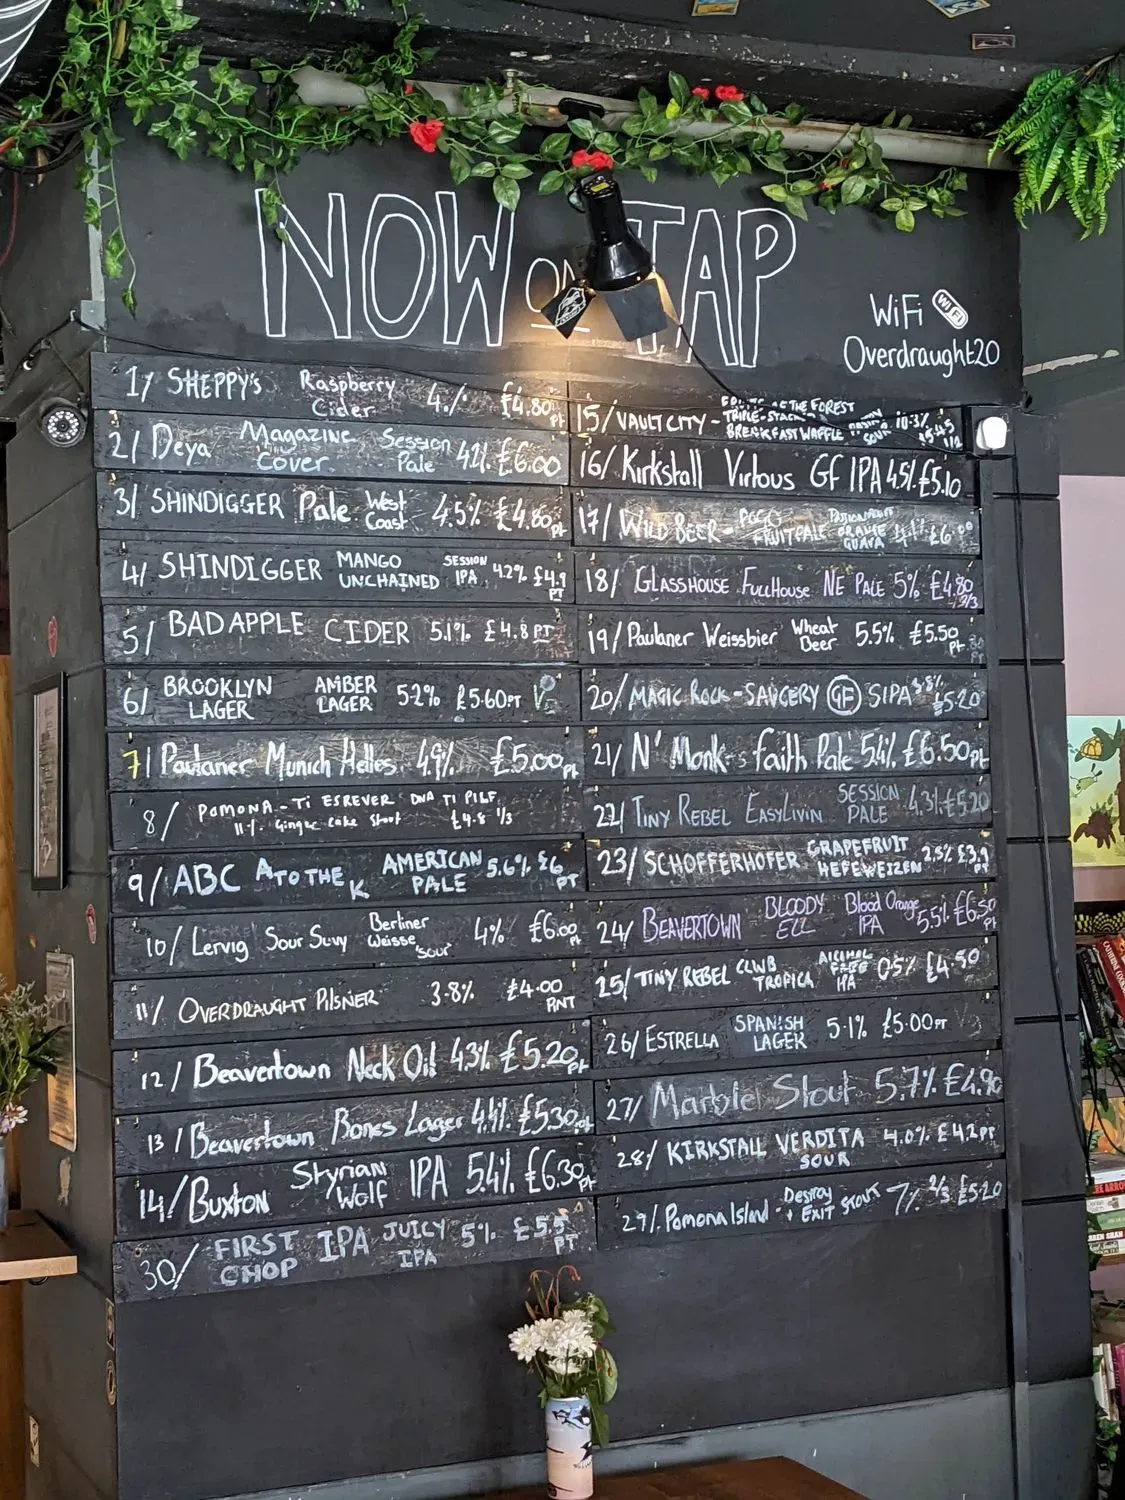 NOW ON TAP
WiFi
Overdraught20
1/ SHEPPY'S Raspberry Cider 4./. £4.80 PT
2/ Deya Magazine Cover Session Pale 4.2% £6.00
3/ SHINDIGGER Pale West Coast 4.5% £4.80 PT
4/ SHINDIGGER MANGO UNCHAINED SESSION IPA 4.2% £4.9 PT
5/ BAD APPLE CIDER 5.1% £4.8 PT
6/ BROOKLYN LAGER AMBER LAGER 5.2% £5.60 PT V
7/ Paulaner Munich Helles 4.9% £5.00 PT
8/ POMONA - TI ESREVER DNA TI PILF
11.1. Ginger Cake Stout £4.8 1/3
9/ ABC A TO THE K AMERICAN PALE 5.6% £6 PT
10/ Lervig Sour Suvy Berliner Weisse "sour" 4% £6.00 PT
11/ OVERDRAUGHT PILSNER 3.8% £4.00 PNT
12/ Beavertown Neck Oil 4.3% £5.20 PT
13/ Beavertown Bones Lager 4.4% £5.30 PT
14/ Buxton Styrian Wolf IPA 5.4% £6.30 PT
30/ FIRST CHOP IPA JUICY IPA 5% £5.5 PT
15/ VAULT CITY - THE FOREST
TRIPLE-STACK BREAKFAST WAFFLE SOUR 10.3% £5.45 1/2
16/ Kirkstall Virtous GF IPA 4.5% £5.10
17/ WILD BEER - POGO FRUIT PALE PASSIONFRUIT ORANGE GUAVA 4.1% £6.00
18/ GLASSHOUSE FULLHOUSE NE PALE 5% £4.80 2/3
19/ Paulaner Weissbier Wheat Beer 5.5% £5.50 PT
20/ MAGIC ROCK - SAUCERY GF SIPA 3.8% £5.20
21/ N' Monk's Faith Pale 5.4% £6.50 PT
22/ TINY REBEL EASY LIVIN SESSION PALE 4.3% £5.20
23/ SCHOFFERHOFER GRAPEFRUIT HEFEWEIZEN 2.5% £3.9 PT
24/ BEAVERTOWN BLOODY 'ELL Blood Orange IPA 5.5% £6.50 PT
25/ TINY REBEL CLWB TROPICA ALCOHOL FREE IPA 0.5% £4.50
26/ ESTRELLA SPANISH LAGER 5.1% £5.00 PT V
27/ Marble Stout 5.7% £4.90
28/ KIRKSTALL VERDITA SOUR 4.0% £4.2 PT
29/. Pomona Island - Destroy + Exit STOUT 7% 2/3 £5.20